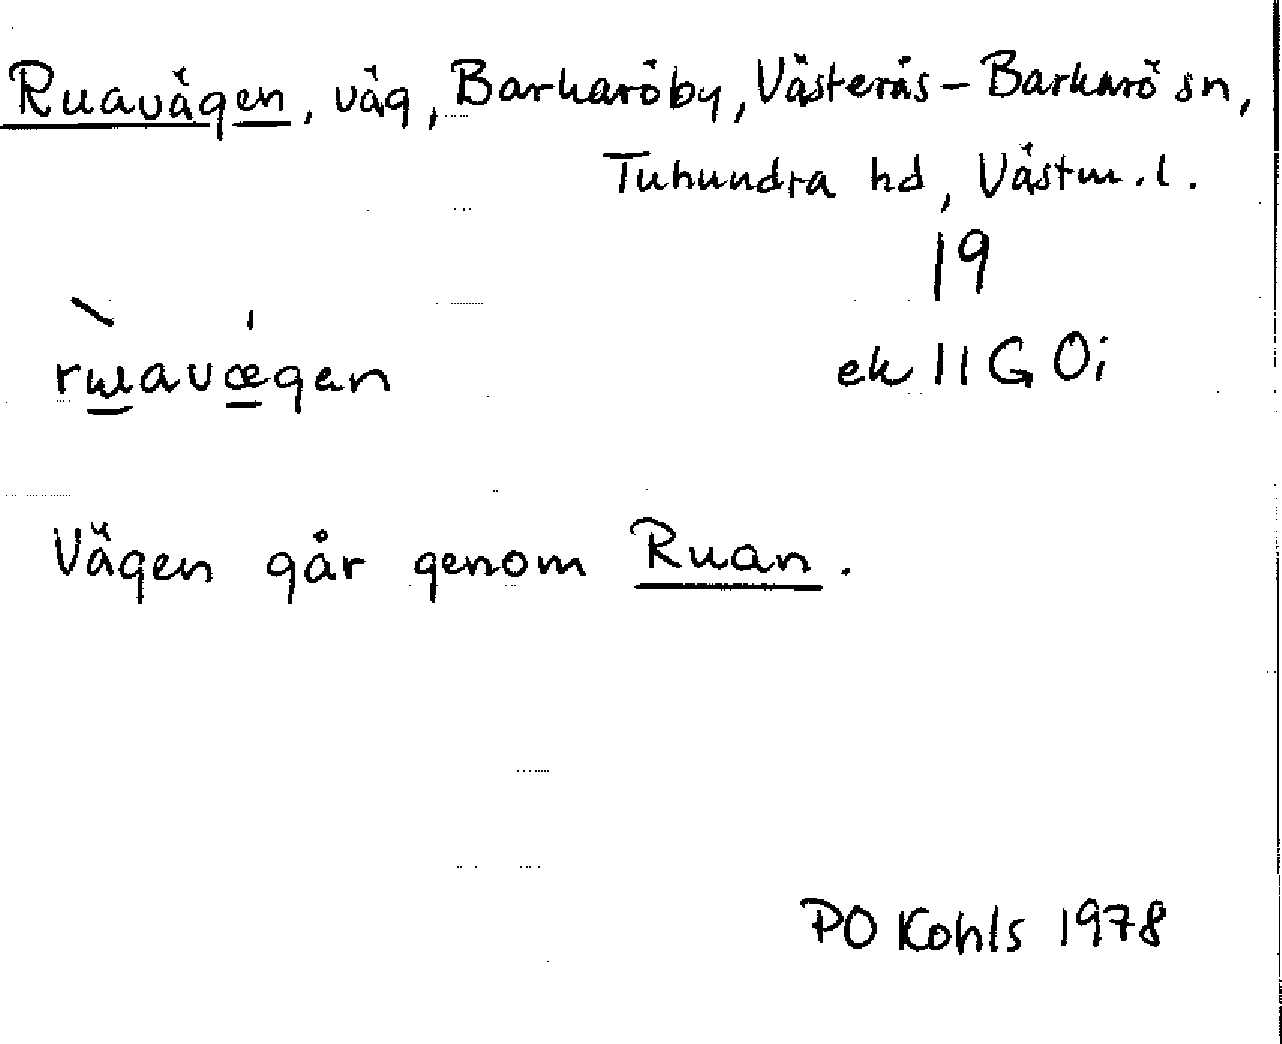 Ruavägen, väg, Barkaröby, Västerås-Barkarö sn,
Tuhundra hd, Västm.l.
19
rɯavægen
ek 11G 0i
Vägen går genom Ruan.
PO Kohls 1978